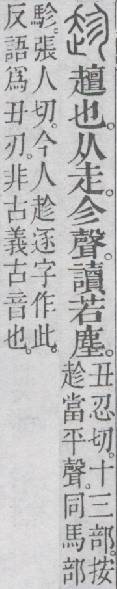 趁 䞴也。从走。㐱聲。讀若塵。
丑忍切。十三部。按
趁當平聲。同馬部
駗。張人切。今人趁逐字作此。
反語爲丑刃。非古義古音也。